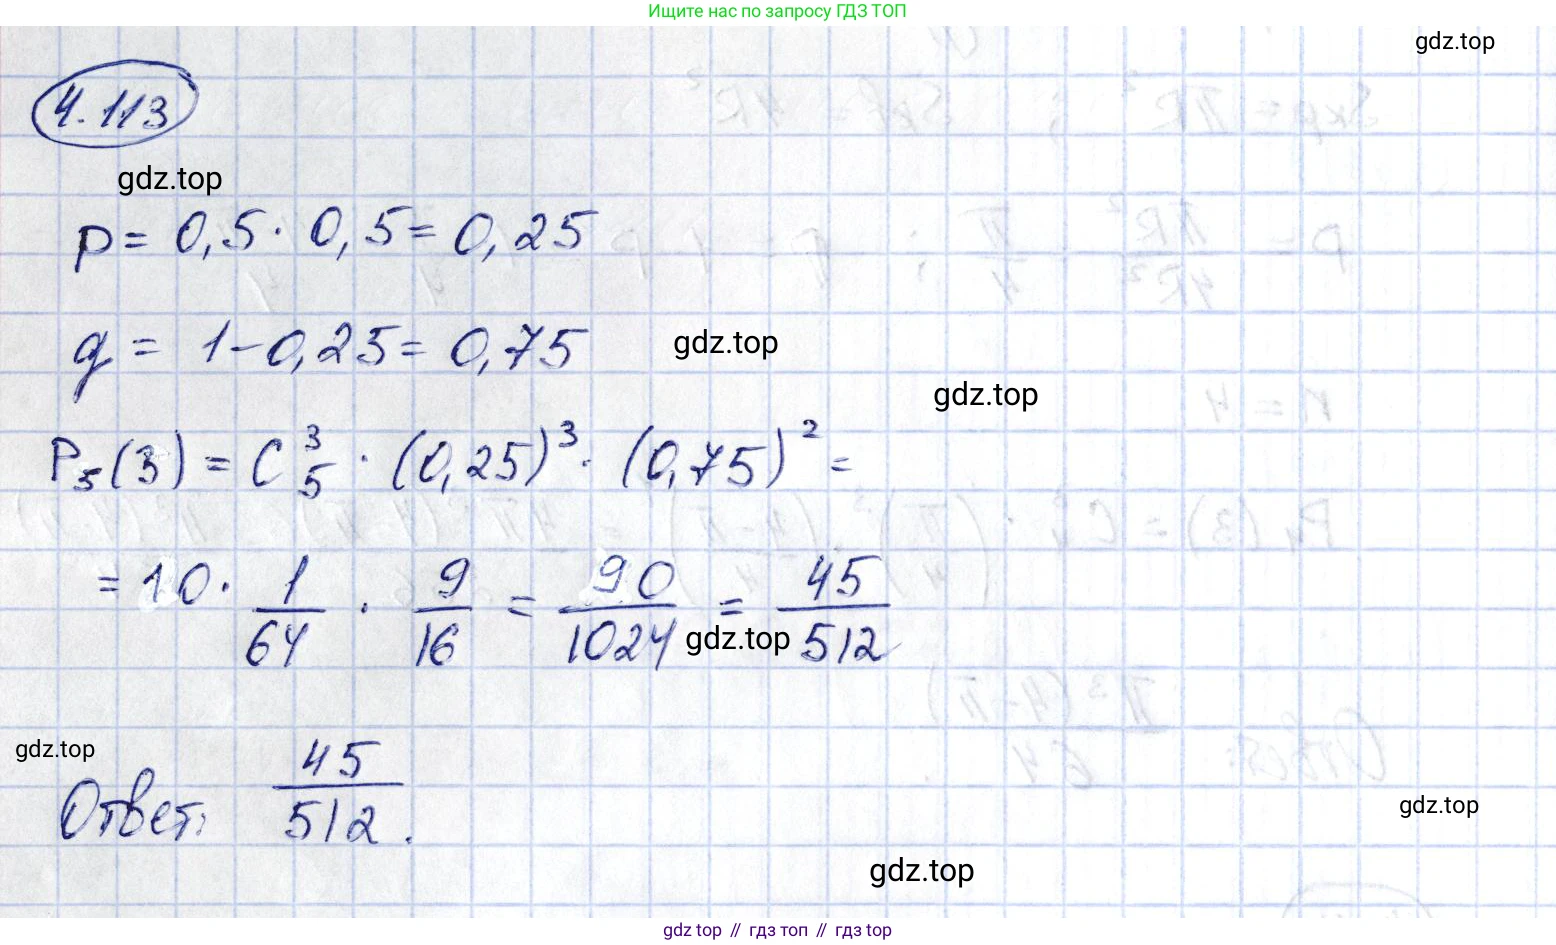 Ищите нас по запросу ГДЗ ТОП
gdz.top
4.113
gdz.top
p = 0,5 · 0,5 = 0,25
q = 1 - 0,25 = 0,75
gdz.top
gdz.top
P₅(3) = C₅³ · (0,25)³ · (0,75)² =
= 10 · 1/64 · 9/16 = 90/1024 = 45/512
gdz.top
gdz.top
Ответ: 45/512.
gdz.top
gdz.top
gdz top // гдз топ // гдз top